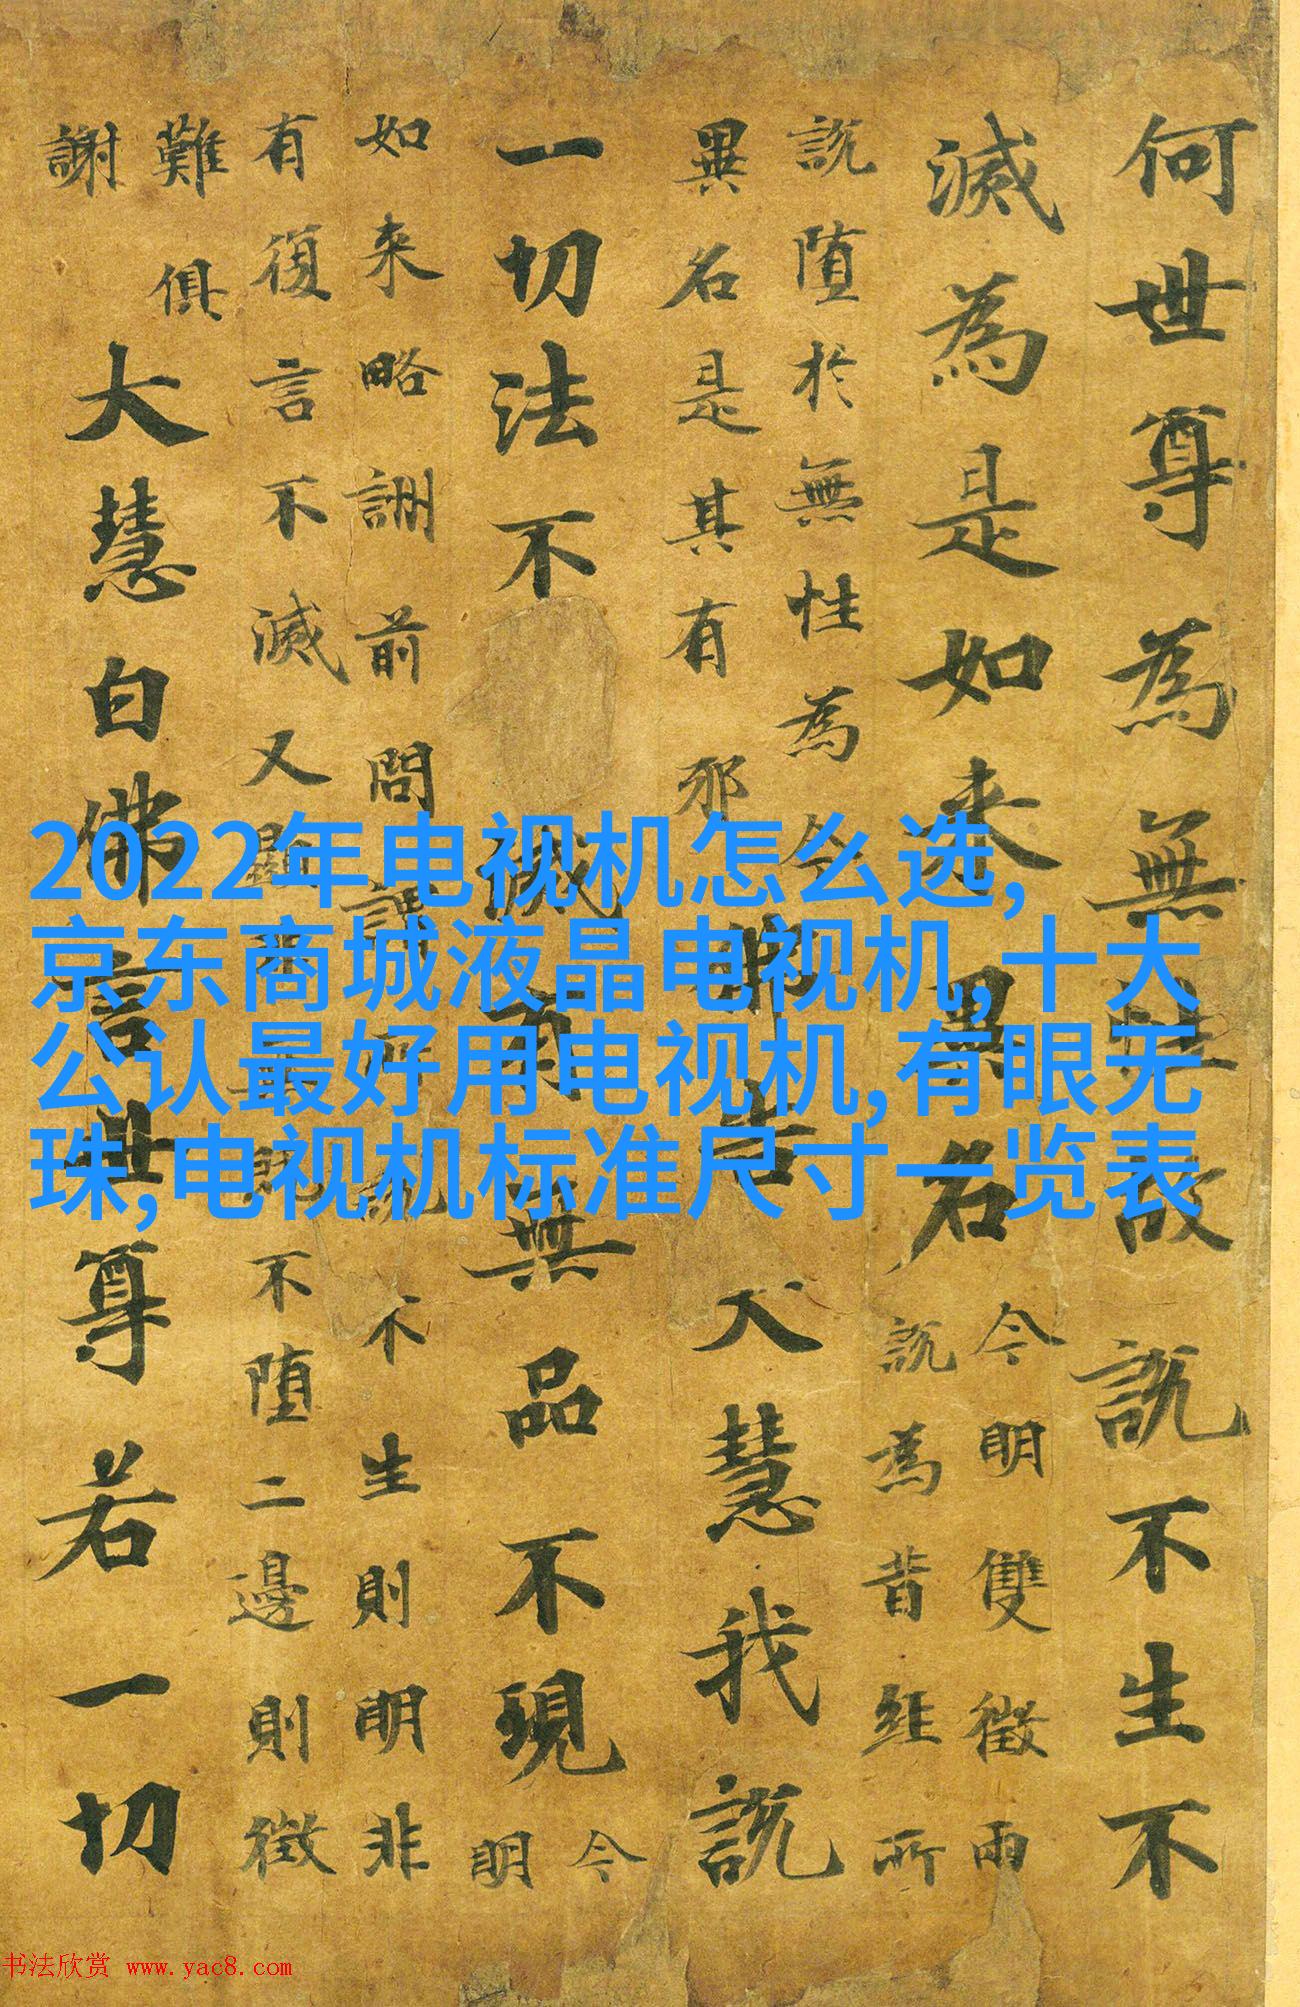 2022年电视机怎么选,
京东商城液晶电视机,十大
公认最好用电视机,有眼无
珠,电视机标准尺寸一览表
何世尊為無性故說不生不
滅為是如來異名
今明雙徵兩
說為昔經所
說墮於無性為今
異名是其有耶
佛告大慧我說
一切法不滅有無品不現
今
明
如來略詶前問謂所說不生則明非
有復言不滅又顯不墮二邊則徵
難俱
謝
大慧白佛言世尊若一切
书法欣赏 www.yac8.com